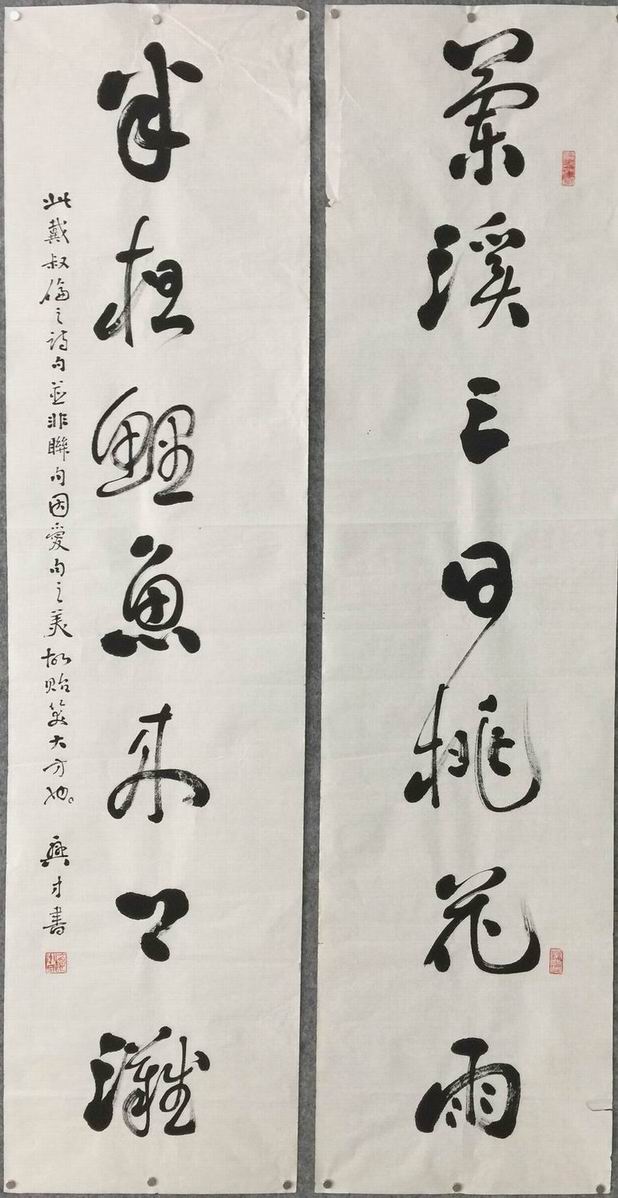 蘭溪三日桃花雨
半担鯉魚来上灘
此戴叔倫之詩句並非聯句因愛句之美故貽笑大方也。 興才書